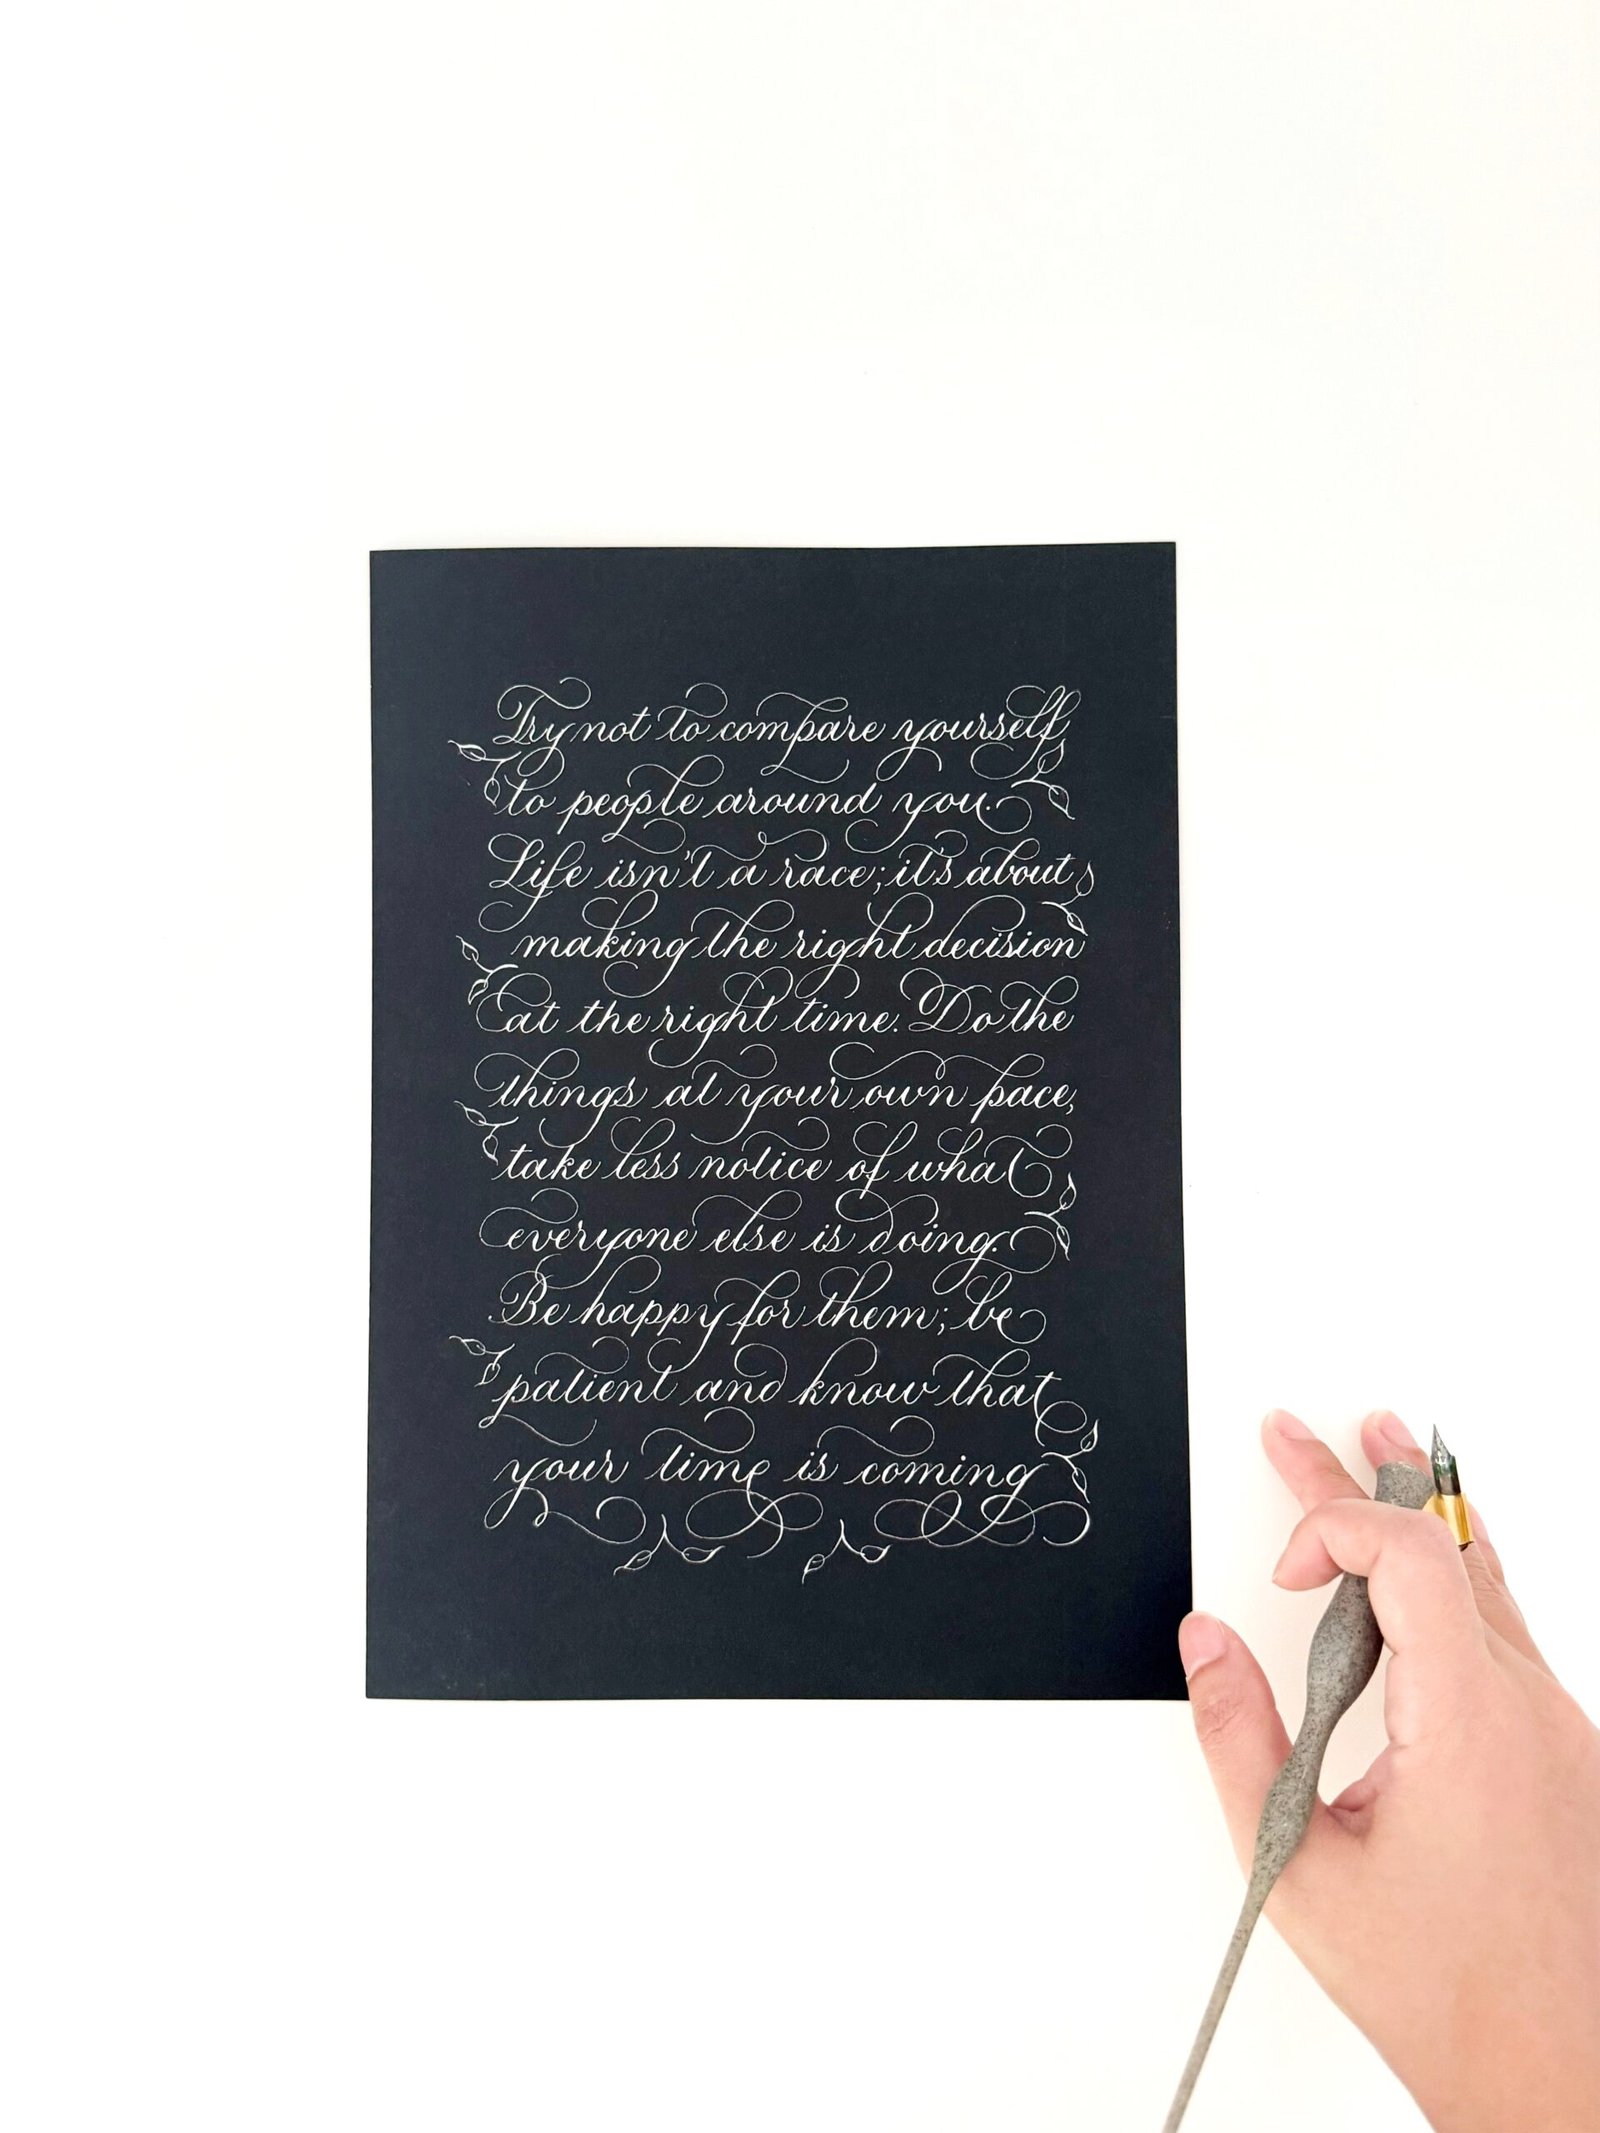 Try not to compare yourself
to people around you.
Life isn't a race; it's about
making the right decision
at the right time. Do the
things at your own pace,
take less notice of what
everyone else is doing.
Be happy for them; be
patient and know that
your time is coming